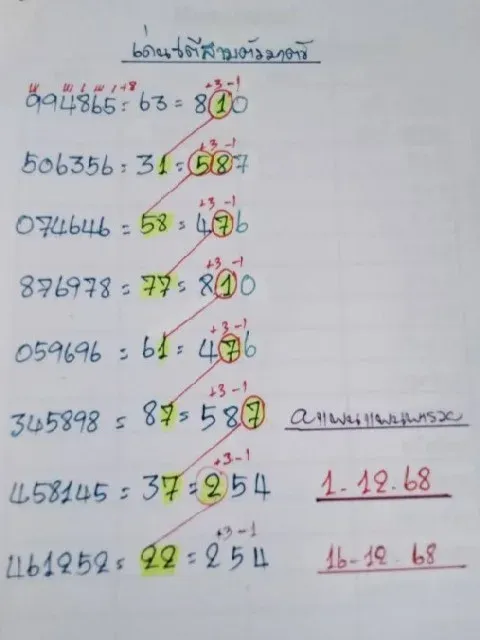 เด่นวิถีสามตัวมาตรี
+3 -1
994865 = 63 = 810
+3 -1
506356 = 31 = 587
+3 -1
074646 = 58 = 476
+3 -1
876978 = 77 = 810
+3 -1
059696 = 61 = 476
+3 -1
345898 = 87 = 587
+3 -1
458145 = 37 = 254
1-12.68
+3 -1
461252 = 22 = 254
16-12.68